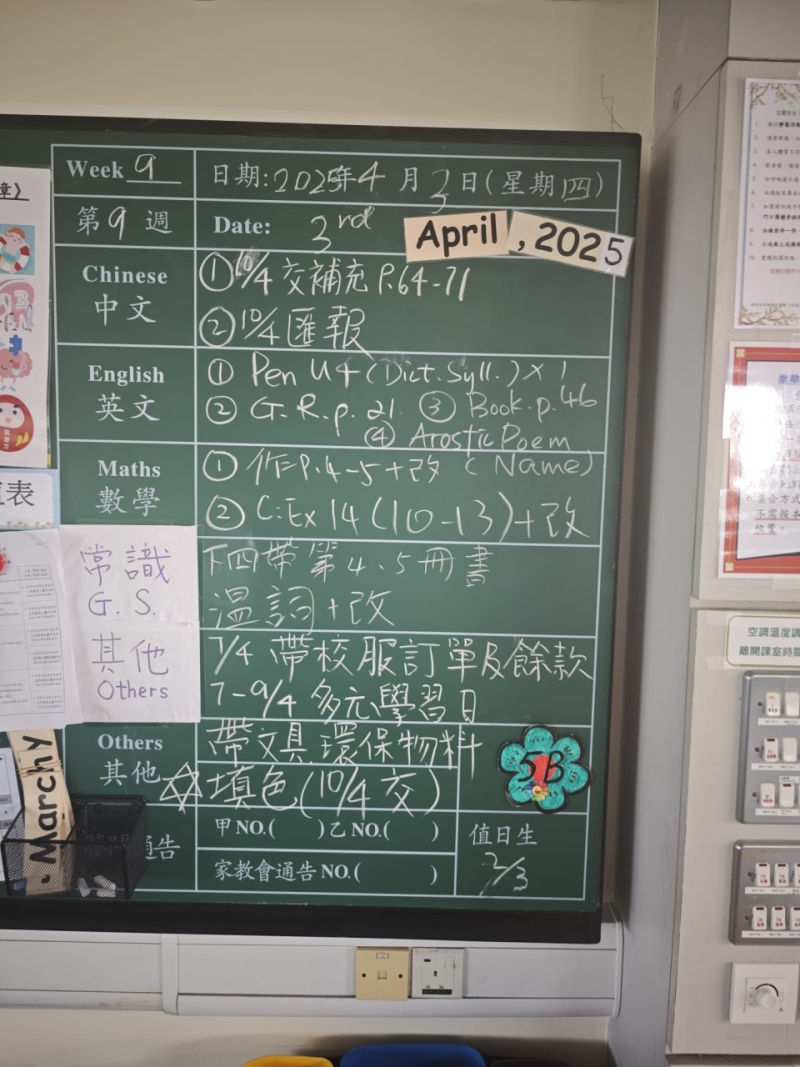 Week 9
日期:2025年4月3日(星期四)
第9週
Date: 3rd April, 2025
Chinese
中文
①10/4 交補充 P.64-71
②10/4 匯報
English
英文
① Pen U4 (Dict. Syll.) × 1
② G.R.p.21 ③ Book.p.46
④ Arostic Poem
Maths
數學
① 作:P.4-5+改 (Name)
② C:Ex 14 (10-13)+改
常識
G.S.
下四帶第4、5冊書
溫詞+改
其他
Others
7/4 帶校服訂單及餘款
7-9/4 多元學習日
Others
其他
帶文具、環保物料
☆填色(10/4 交)
5B
通告
甲NO.( )乙NO.( )
家教會通告NO.( )
值日生
2/3
March
表
空調溫度調
離開課室時